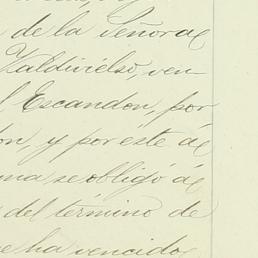 de la Señora
Zaldivielso, ven-
Escandon, por
y por este á
se obligó á
del termino de
ha vencido